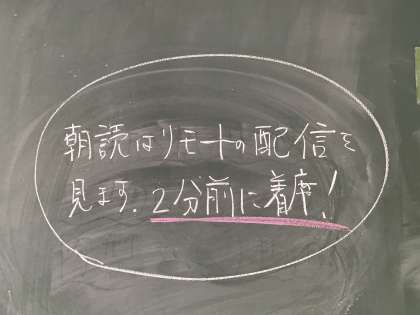 朝読はリモートの配信を
見ます. 2分前に着席!